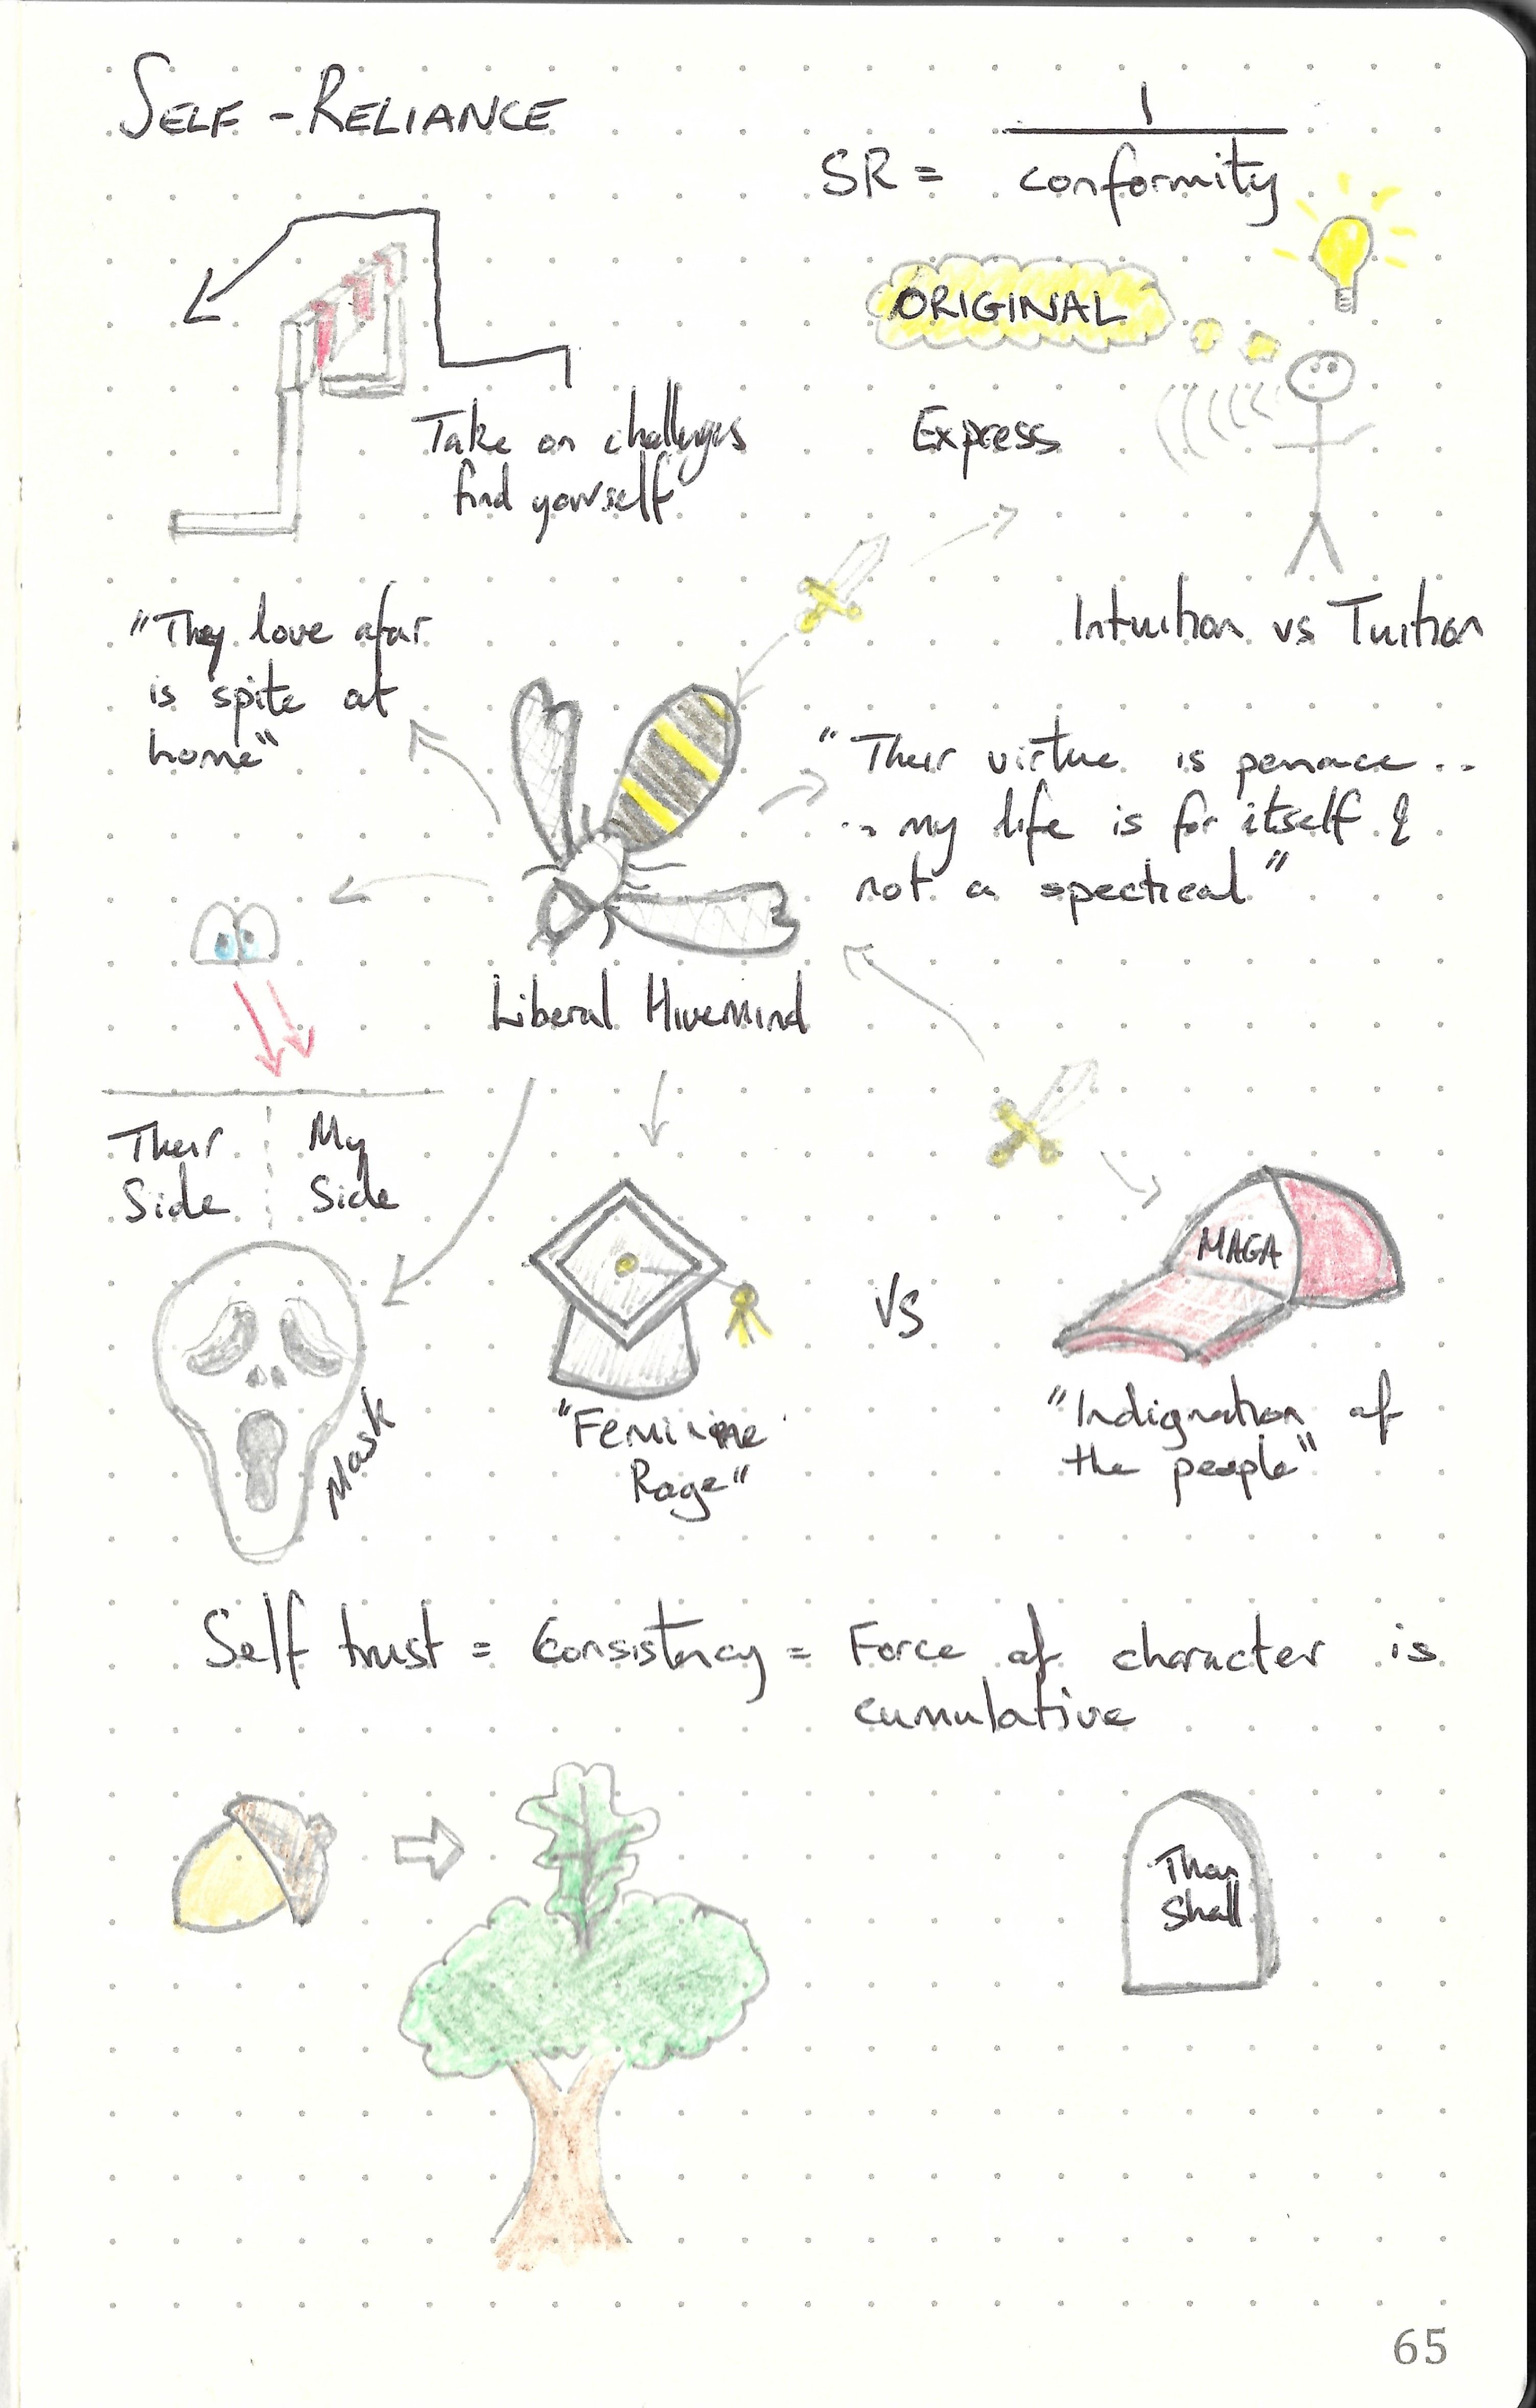 SELF-RELIANCE
1
SR = conformity
ORIGINAL
Express
Take on challenges
find yourself
Intuition vs Tuition
"They love afar
is spite at
home"
"Their virtue is penance..
.. my life is for itself &
not a spectical"
Liberal Hivemind
Their
Side
My
Side
MAGA
VS
Mask
"Feminine
Rage"
"Indignation of
the people"
Self trust = Consistency = Force of character is
cumulative
Thou
Shall
65